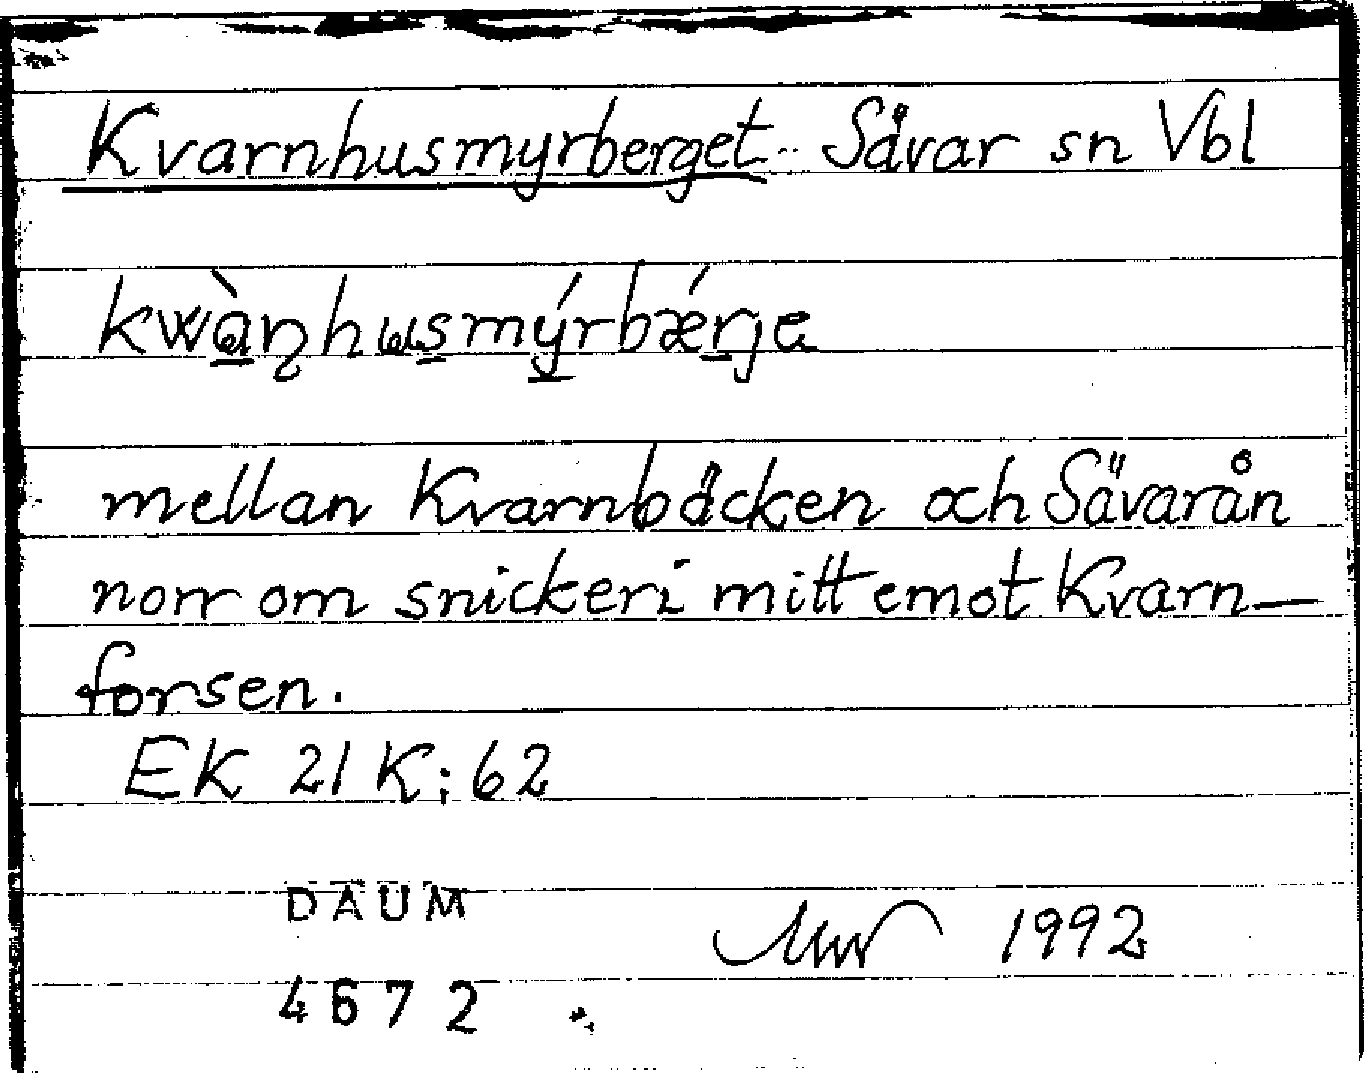 Kvarnhusmyrberget Sävar sn Vbl
kwàɳhusmýrbǽrja
mellan Kvarnbäcken och Sävarån
norr om snickeri mitt emot Kvarn—
forsen.
EK 21 K:62
DAUM
1992
4672